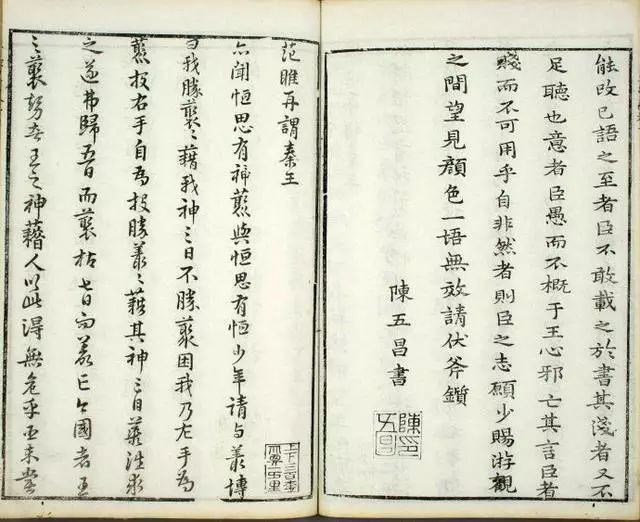 能改已語之至者臣不敢載之於書其淺者又不
足聽也意者臣愚而不概于王心邪亡其言臣者
賤而不可用乎自非然者則臣之志願少賜游觀
之間望見顏色一語無效請伏斧鑕
陳五昌書
陳印五昌
范睢再謂秦王
亦聞恒思有神藂與恒思有恒少年請与藂博
曰我勝藂藂藉我神三日不勝藂困我乃左手為
藂投右手自為投勝藂藂藉其神三日藂往求
之遂弗歸五日而藂枯七日而藂亡今國者王
之藂勢者王之神藉人以此得無危乎臣未嘗
上下三百年